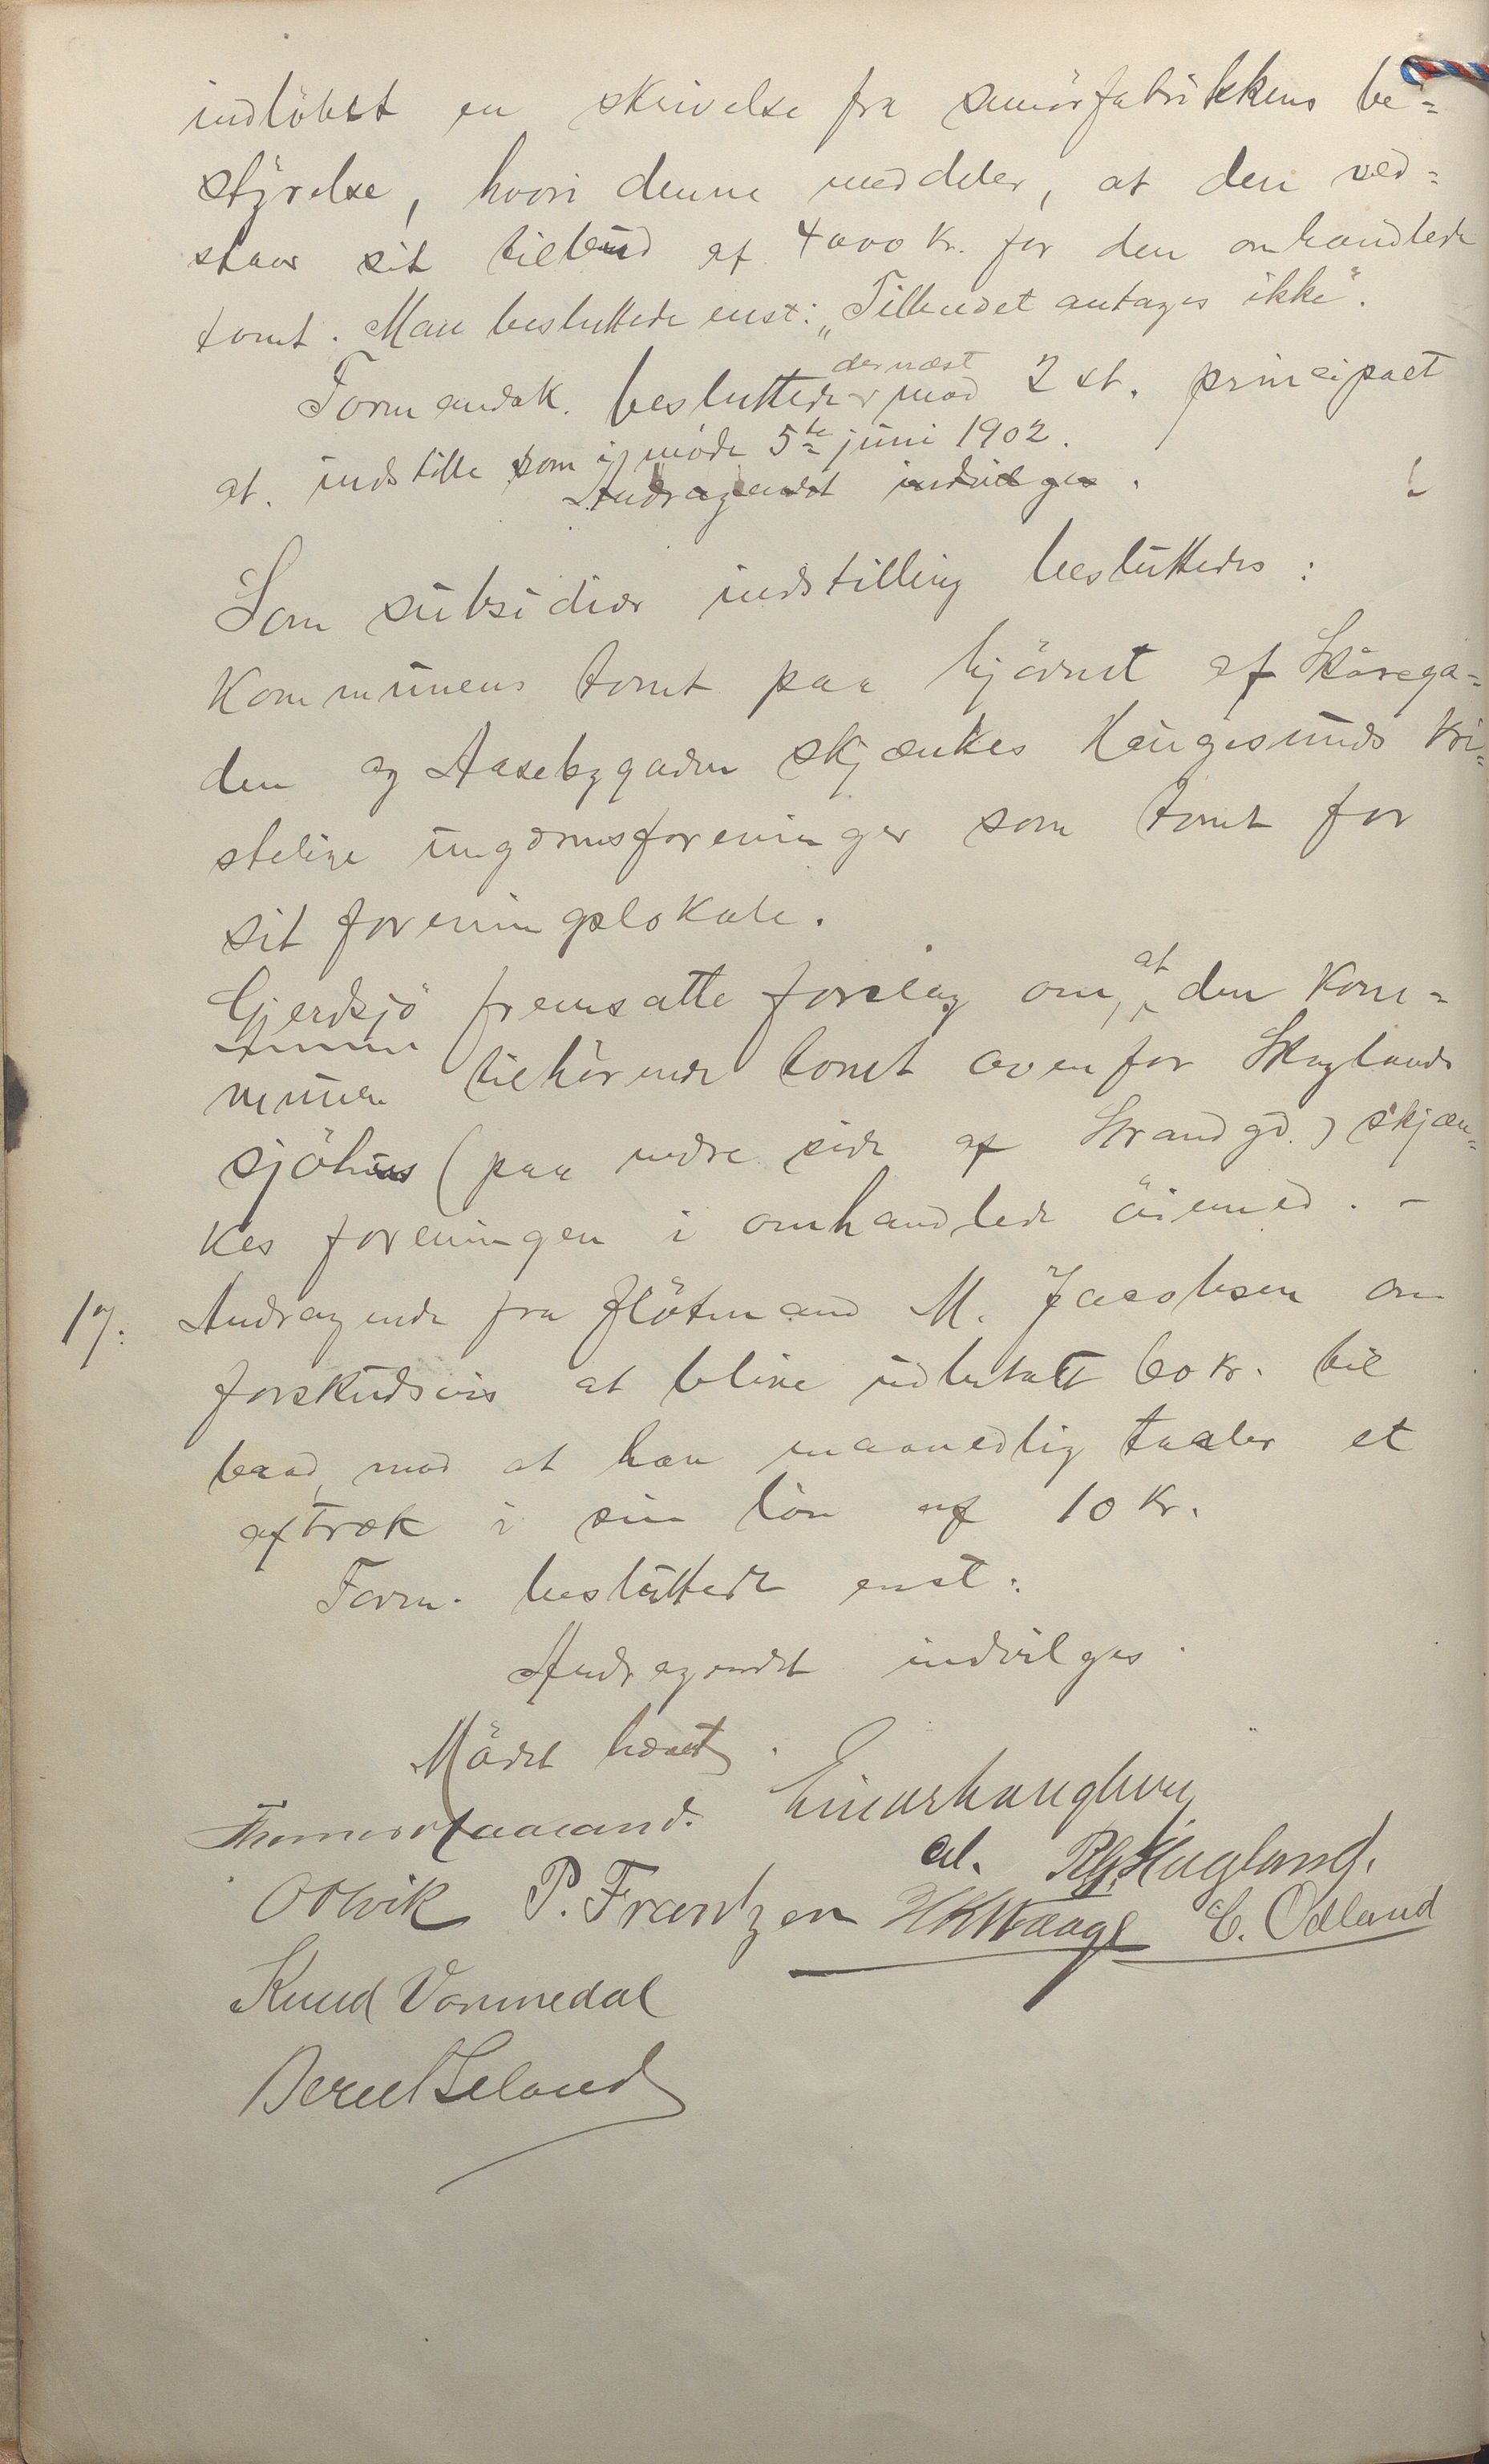 indløbet en skrivelse fra smørfabrikkens be=
styrelse, hvori denne meddeler, at den ved=
staar sit tilbud af 4000 kr. for den omhandlede
tomt. Man besluttede enst: „Tilbudet antages ikke".
dernæst
Formandsk. besluttede mod 2 st. principalt
at indstille som i møde 5te juni 1902.
Andragendet indvilges.
Som subsidiær indstilling besluttedes:
Kommunens tomt paa hjørnet af Skårega=
den og Aasebygaden skjænkes Haugesunds kri=
stelige ungdomsforeninger som tomt for
sit foreningslokale.
Gjerdsjø fremsatte forslag om, at den kom=
munen tilhørende tomt ovenfor Skaglands
sjøhus (paa nedre side af Strandgd.) skjæn=
kes foreningen i omhandlede øiemed. -
17. Andragende fra fløtmand M. Jacobsen om
forskudsvis at blive udbetalt 60 kr. til
baad, mod at han maanedlig taaler et
aftræk i sin løn af 10 kr.
Form. besluttede enst:
Andragendet indvilges.
Mødet hævet.
Einar Haughven
Thomas Haaland.
cd. Skagland.
O Olvik P. Frantzen HKWaage E. Odland
Knud Vormedal
Bernt Leland